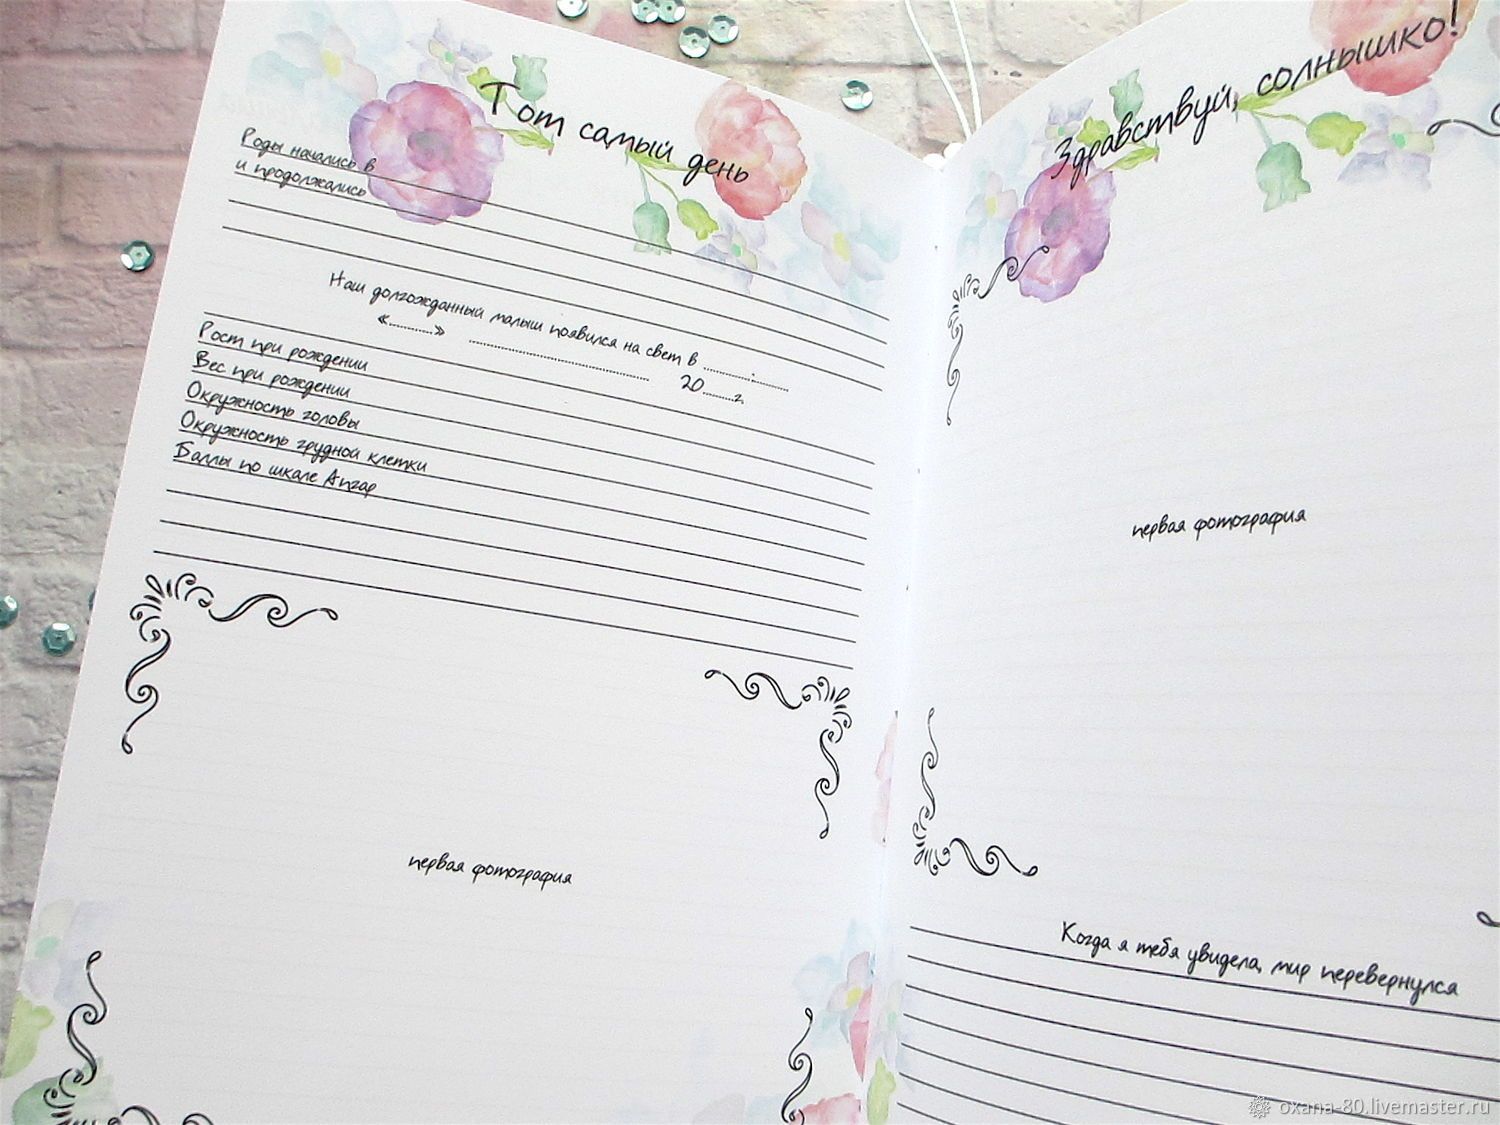 Тот самый день
Роды начались в
и продолжались
Наш долгожданный малыш появился на свет в ........:........
«..........» ........................................ 20........г.
Рост при рождении
Вес при рождении
Окружность головы
Окружность грудной клетки
Баллы по шкале Апгар
первая фотография
Здравствуй, солнышко!
первая фотография
Когда я тебя увидела, мир перевернулся
oxana-80.livemaster.ru